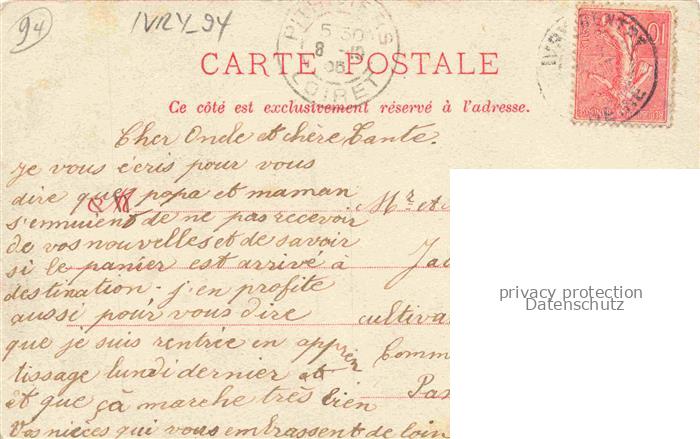 94
IVRY_94
PITHIVIERS
5 30
8 -5
05
LOIRET
10
CARTE POSTALE
Ce côté est exclusivement réservé à l'adresse.
Cher Oncle et chère Tante.
Je vous écris pour vous
dire que papa et maman
s'ennuient de ne pas recevoir
de vos nouvelles et de savoir
si le panier est arrivé à
destination - j'en profite
aussi pour vous dire
que je suis rentrée en appren
tissage lundi dernier
et que çà marche très bien
Vos nièces qui vous embrassent de loin
Mr et
Jac
cultiva
Comm
Pa
privacy protection
Datenschutz